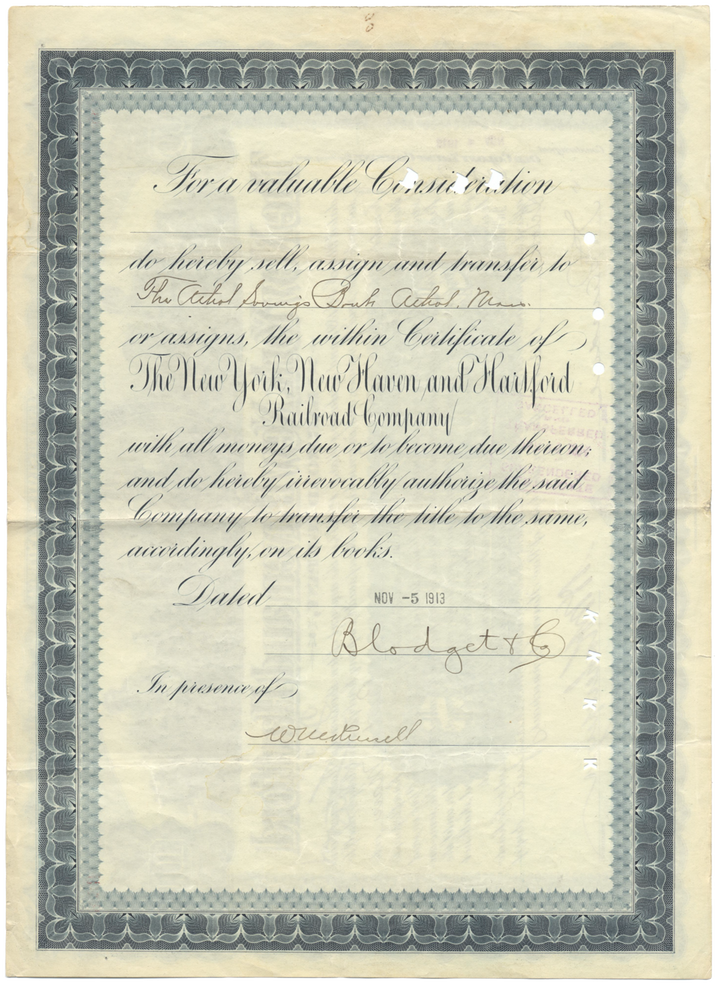 For a valuable Consideration
do hereby sell, assign and transfer to
The Athol Savings Bank Athol, Mass.
or assigns, the within Certificate of
The New York, New Haven and Hartford
Railroad Company
with all moneys due or to become due thereon;
and do hereby irrevocably authorize the said
Company to transfer the title to the same,
accordingly, on its books.
Dated NOV -5 1913
Blodget & Co
In presence of